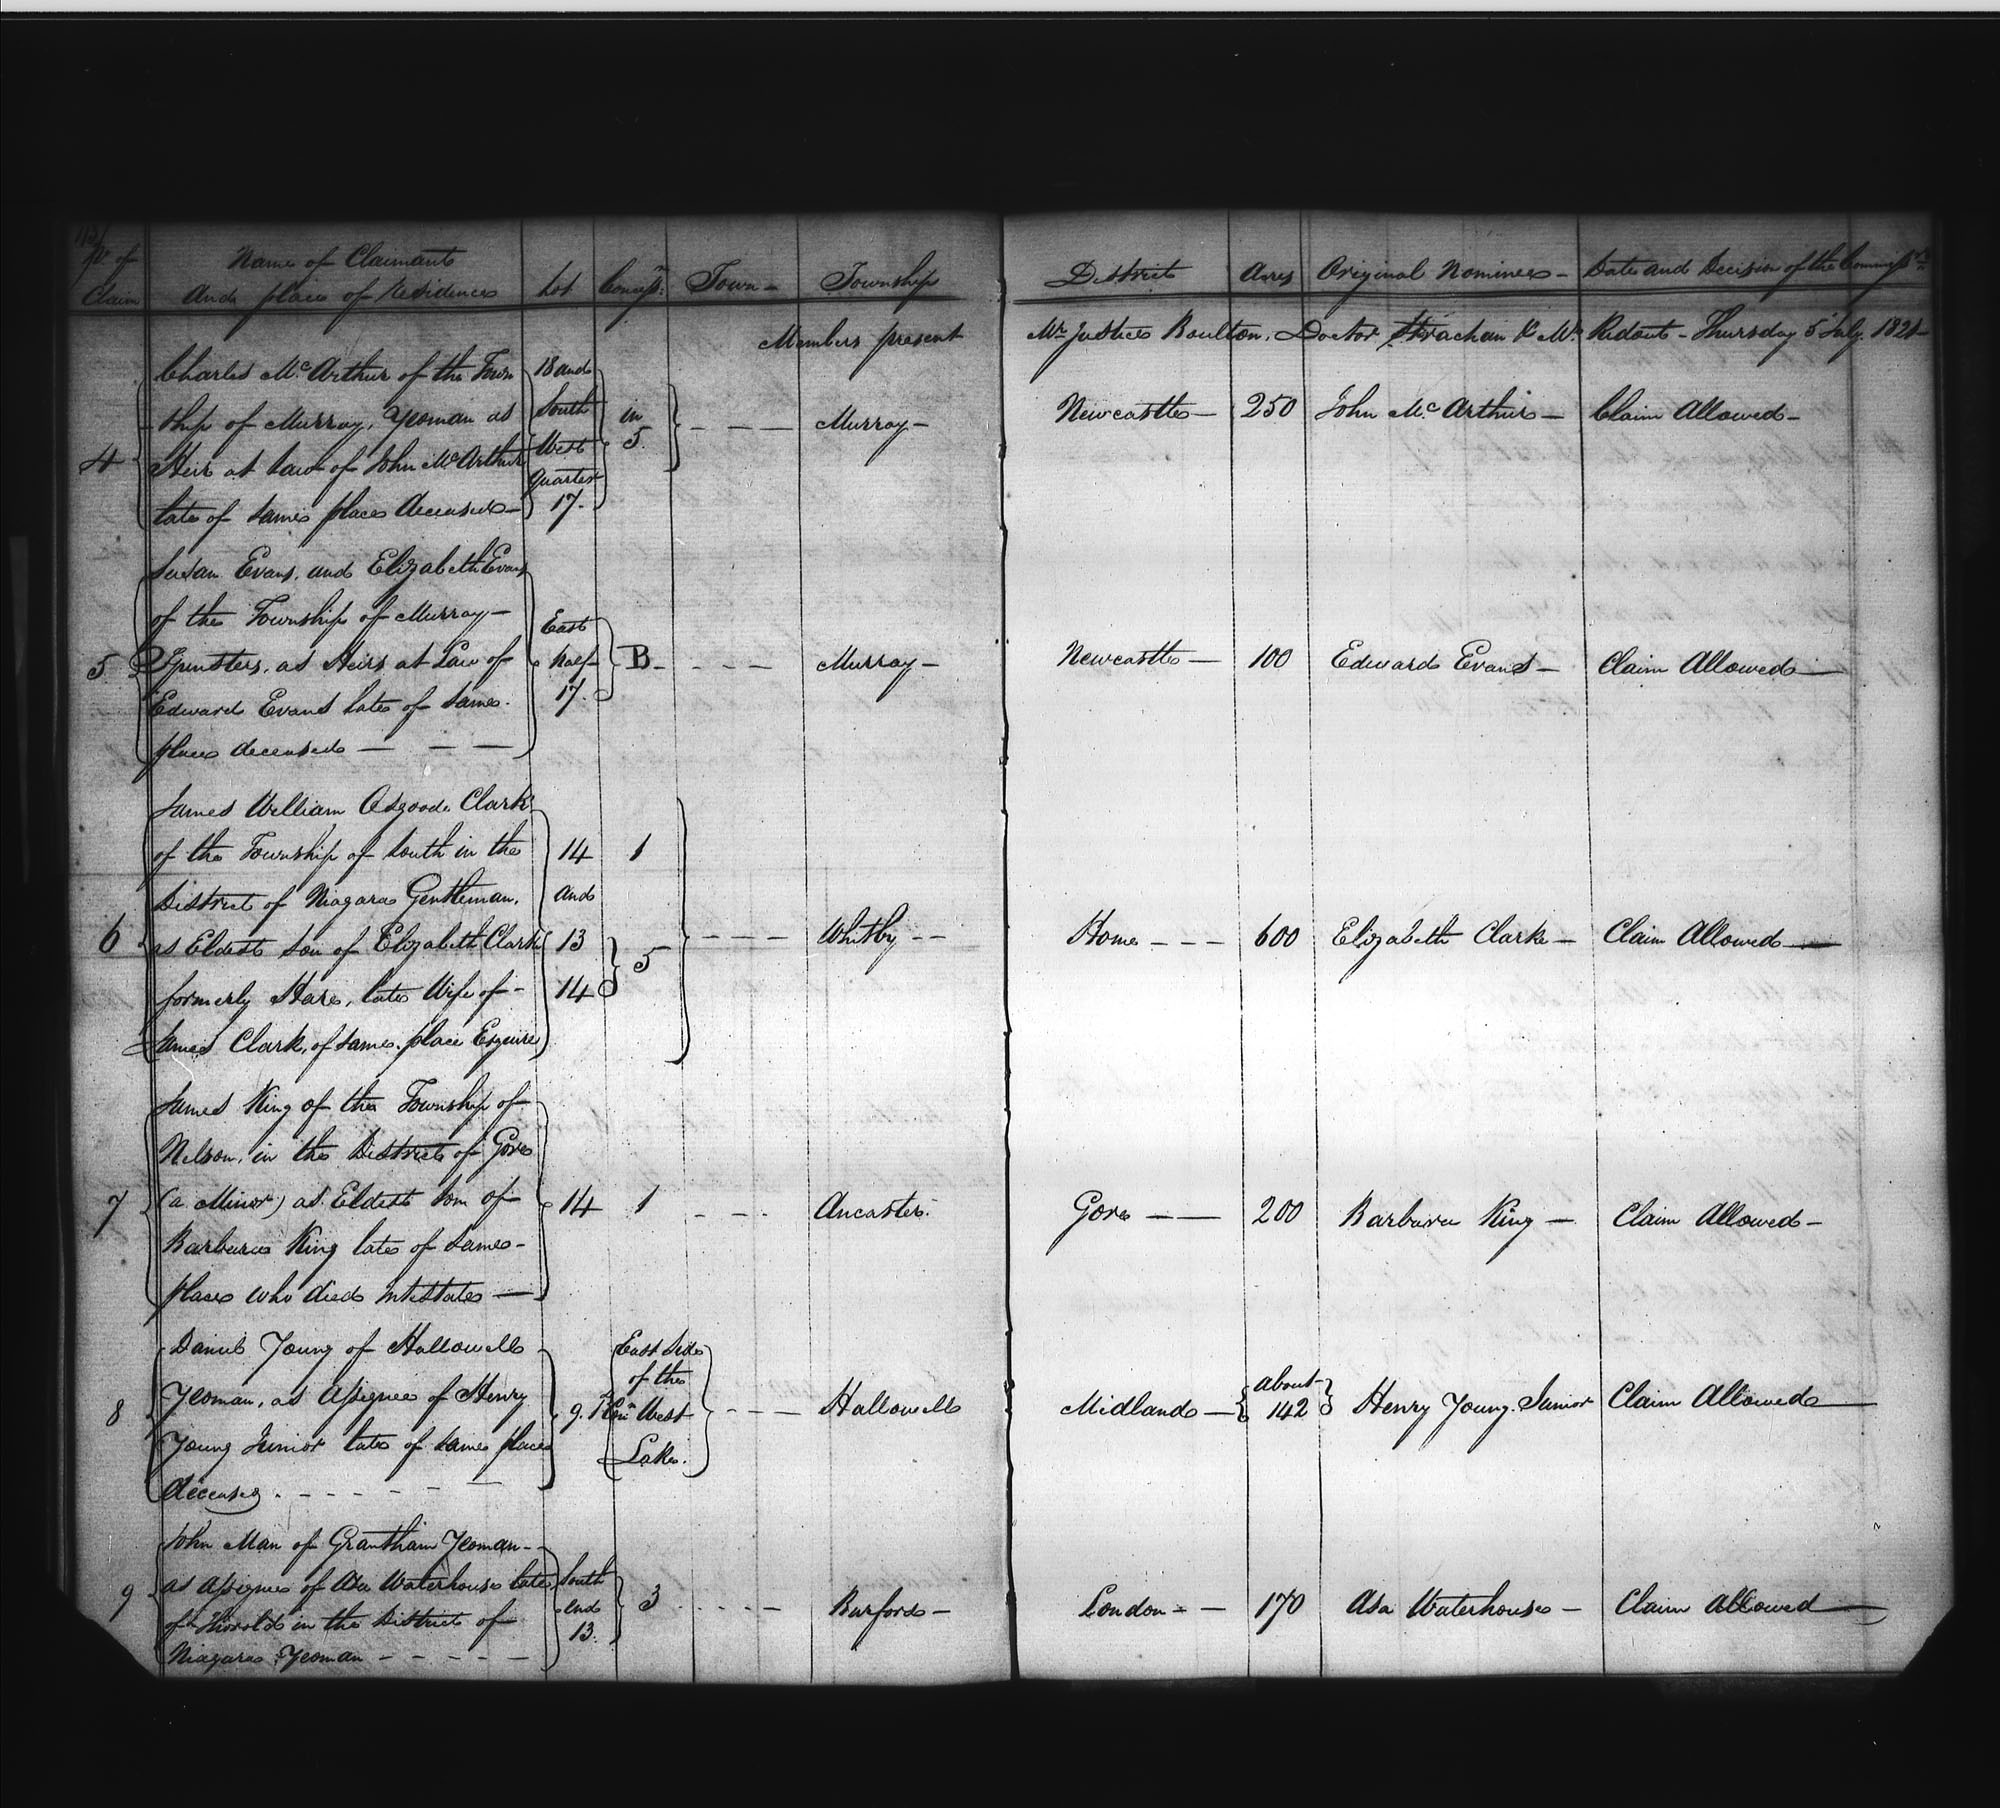 No. of Claim | Name of Claimant and place of Residence | Lot | Concessn: | Town | Township | District | Acres | Original Nominee | Date and Decision of the Commissrs
Members present Mr. Justice Boulton, Doctor Strachan & Mr. Ridout - Thursday 5 July. 1821
4
Charles McArthur of the Town
ship of Murray, Yeoman as
Heir at Law of John McArthur
late of same place deceased
18 and
South
West
Quarter
17.
in
5.
Murray
Newcastle
250
John McArthur
Claim Allowed
5
Susan Evans, and Elizabeth Evans
of the Township of Murray
Spinsters, as Heirs at Law of
Edward Evans late of same
place deceased
East
half
17.
B
Murray
Newcastle
100
Edward Evans
Claim Allowed
6
James William Osgoode Clark
of the Township of Louth in the
District of Niagara Gentleman,
as Eldest Son of Elizabeth Clark
formerly Hare, late Wife of
James Clark, of same place Esquire
14
and
13
14
1
5
Whitby
Home
600
Elizabeth Clarke
Claim Allowed
7
James King of the Township of
Nelson, in the District of Gore
(a Minor) as Eldest Son of
Barbara King late of same
place who died intestate
14
1
Ancaster
Gore
200
Barbara King
Claim Allowed
8
Daniel Young of Hallowell
Yeoman, as Assignee of Henry
Young Junior late of same place
deceased
9.
East Side
of the
West
Lake.
Hallowell
Midland
about
142
Henry Young Junior
Claim Allowed
9
John Man of Grantham Yeoman
as Assignee of Asa Waterhouse late
of Thorold in the District of
Niagara Yeoman
South
end
13.
3
Burford
London
170
Asa Waterhouse
Claim Allowed